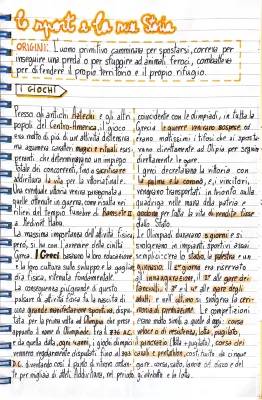 Lo sport e la sua Storia
ORIGINI: L'uomo primitivo camminava per spostarsi, correva per
inseguire una preda o per sfuggire ad animali feroci, combatteva
per difendere il proprio territorio e il proprio rifugio.
I GIOCHI
Presso gli antichi Aztechi e gli altri
popoli del Centro-America, il gioco
era molto di più di un'attività destinata
ma assumeva caratteri magici e rituali
che determinavano un impegno
totale dei concorrenti, fino a sacrificare
addirittura la vita per la vittoria finale.
Una cerchiata vittoria riviera paragonata a
quelle ottenute in guerra, come risulta nei
rilievi del tempio funebre di Ramsete II
a Medinet Habu.
La massima importanza dell'attività fisica
però, si ha con l'avvenire della civiltà
Greca. I Greci basavano la loro educazione
e la loro cultura sullo sviluppo e la
fisica, ritenuta fondamentale.
La conseguenza più grande di questo
pulsare di attività fisica fu la nascita di
una grande manifestazione sportiva, dispu-
tata per la prima volta ad Olimpia che prese
appunto il nome di Olimpiade. Era il 776 a.C.
e da quella data, ogni anni, i giochi olimpici
venivano regolarmente disputati fino al 393
D.C. diventando così il punto di ritrovo
per migliaia di atleti
coincidente con le olimpiadi, in tutta la
Grecia le guerre venivano sospese ed
erano moltissimi i tifosi che si sposta-
vano direttamente ad Olimpia per seguire
direttamente le gare.
I greci decretavano la vittoria con
la palma e la corona, e i vincitori,
venivano trasportati in trionfo sulla
quadriga nelle mura della patria e
godevano per tutta la vita di rendite fisse
dallo Stato.
Le Olimpiadi duravano 5 giorni e si
svolgevano in impianti sportivi assai
semplici: c'era lo stadio, la palestra e un
ginnasio. Il 1° giorno era riservato
all'inaugurazione, il 2° alle gare dei
fanciulli, il 3° e il 4° alle gare degli
adulti e nell'ultimo si svolgeva la ceri-
monia di premiazione. Le competizioni
erano molto simili a quelle di oggi: corsa
veloce o di resistenza, lotta, pugilato,
il pancrazio (lotta + pugilato), corsa dei
cavalli e pentathlon, costituito da cinque
gare: corsa, salto, lancio del disco e del
giavellotto e la lotta.